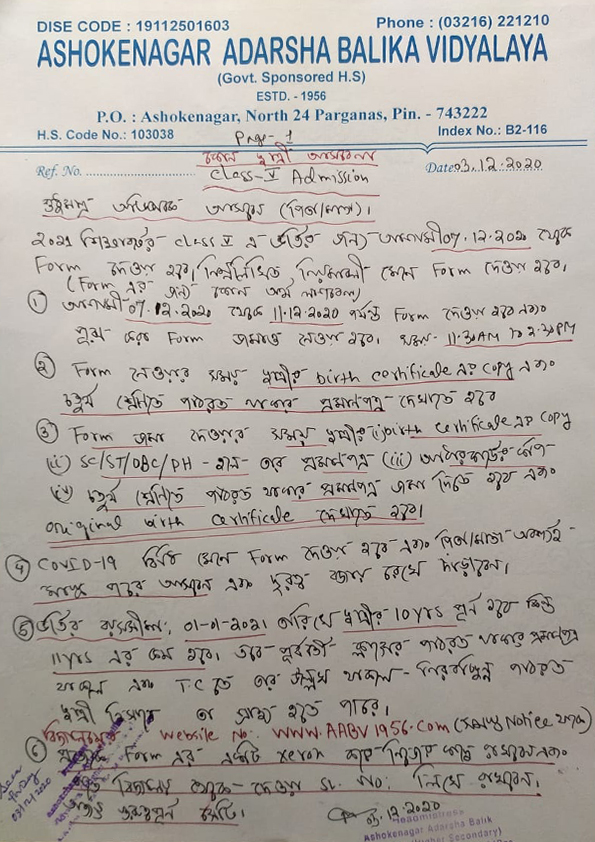 DISE CODE : 19112501603 Phone : (03216) 221210
ASHOKENAGAR ADARSHA BALIKA VIDYALAYA
(Govt. Sponsored H.S)
ESTD. - 1956
P.O. : Ashokenagar, North 24 Parganas, Pin. - 743222
H.S. Code No.: 103038 Index No.: B2-116
Page - 1
Ref. No. Date 03.12.2020
Class-V Admission
অভিভাবক (পিতা/মাতা)।
২০২১ শিক্ষাবর্ষের class V এ ভর্তির জন্য আগামী 07.12.2020 থেকে
Form দেওয়া হবে। নিম্নলিখিত নিয়মাবলী মেনে Form দেওয়া হবে।
(Form এর জন্য কোন অর্থ লাগবেনা)
① আগামী 07.12.2020 থেকে 11.12.2020 পর্যন্ত Form দেওয়া হবে এবং
পূরণ করা Form জমাও নেওয়া হবে। সময় - 11.30AM to 2.30PM
② Form নেওয়ার সময় ছাত্রীর birth certificate এর copy এবং
চতুর্থ শ্রেণিতে পাঠরত থাকার প্রমাণপত্র দেখাতে হবে
③ Form জমা দেওয়ার সময় ছাত্রীর (i) birth certificate এর copy
(ii) SC/ST/OBC/PH - হলে তার প্রমাণপত্র (iii) আধার কার্ডের কপি
(iv) চতুর্থ শ্রেণিতে পাঠরত থাকার প্রমাণপত্র জমা দিতে হবে এবং
original birth certificate দেখাতে হবে।
④ COVID-19 বিধি মেনে Form দেওয়া হবে এবং পিতা/মাতা অবশ্যই
মাস্ক পরে আসবেন এবং দূরত্ব বজায় রেখে দাঁড়াবেন।
⑤ ভর্তির বয়সসীমা: 01-01-2021 তারিখে ছাত্রীর 10yrs পূর্ণ হবে কিন্তু
11yrs এর কম হবে। তবে পূর্ববর্তী ক্লাসের পাঠরত থাকার প্রমাণপত্র
থাকলে এবং T.C তে তার উল্লেখ থাকলে নিরবচ্ছিন্ন পাঠরত
ছাত্রী হিসাবে তা গ্রাহ্য হতে পারে।
বিদ্যালয়ের website No: WWW.AABV1956.Com (সমস্ত Notice পাবেন)
⑥ Form এর একটি xerox করে নিজের কাছে রাখবেন এবং
বিদ্যালয় থেকে দেওয়া SL. No: লিখে রাখবেন।
গুরুত্বপূর্ণ
03.12.2020
03/12/2020
Headmistress
Ashokenagar Adarsha Balik
(Higher Secondary)